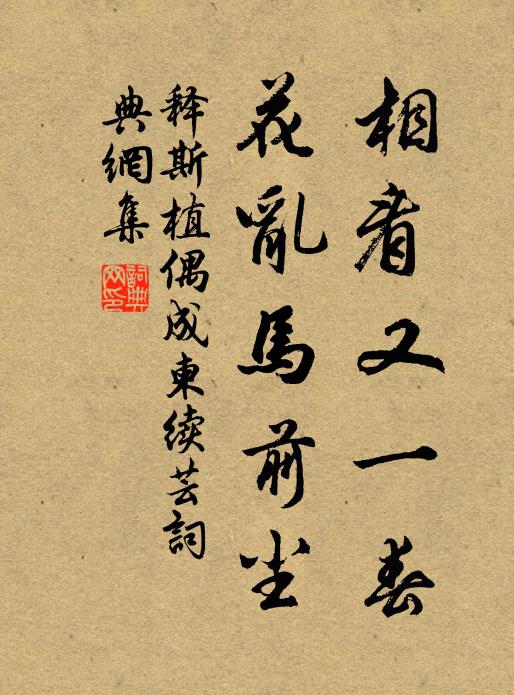 相看又一春
花亂馬前尘
释斯植偶成東续芸詞
典網集
詞典
网印